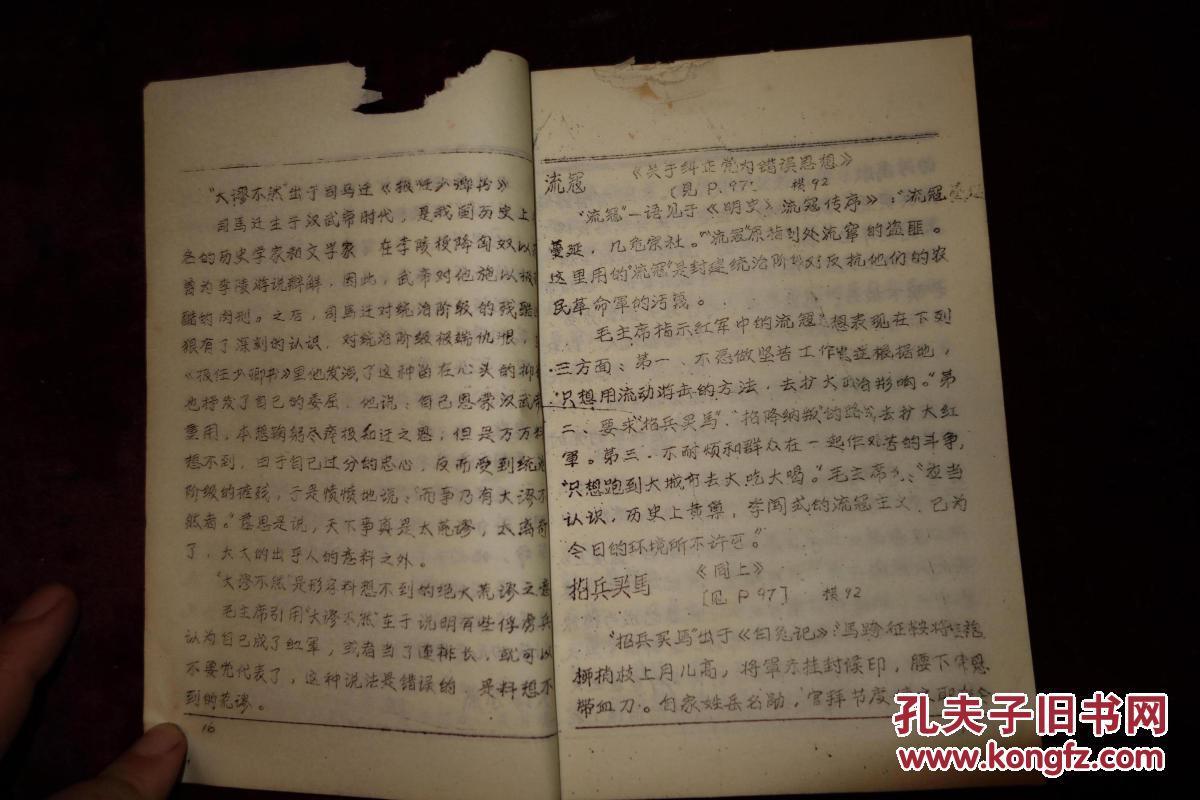 "大谬不然"出于司马迁《报任少卿书》
司马迁生于汉武帝时代，是我国历史上
名的历史学家和文学家 在李陵投降匈奴以
曾为李陵游说辩解，因此，武帝对他施以极
酷的肉刑。之后，司馬迁对统治阶级的残酷
狠有了深刻的认识，对统治阶级极端仇恨，
《报任少卿书》里他发泄了这种留在心头的
也抒发了自己的委屈．他说：自己恩蒙汉武帝
重用，本想鞠躬尽瘁报知迁之恩，但是万万
想不到，由于自己过分的忠心，反而受到统治
阶级的摧残，于是愤愤地说："而事乃有大谬不
然者。"意思是说，天下事真是太荒谬，太离奇
了，大大的出乎人的意料之外。
"大谬不然"是形容料想不到的绝大荒谬之意
毛主席引用"大谬不然"在于说明有些俘虏兵
认为自己成了红軍，或者当了连排长，就可以
不要党代表了，这种说法是错误的，是料想不
到的荒谬。
16
流冦 《关于纠正党内错误思想》
［见 P.97］ 横92
"流冦"一语见于《明史》流冦传序》："流冦
蔓延，几危宗社。""流冦"原指到处流窜的盗匪。
这里用的"流冦"是封建统治阶级对反抗他们的农
民革命軍的污蔑。
毛主席指示红军中的流冦 想表现在下列
三方面：第一、不愿做坚苦工作 建立根据地，
"只想用流动游击的方法，去扩大政治影响。"第
二、要求"招兵买馬"、"招降纳叛"的路 去扩大红
軍。第三．不耐烦和群众在一起作艰苦的斗争，
"只想跑到大城市去大吃大喝。"毛主席 ："应当
认识，历史上黄巢，李闯式的流冠主义．已为
今日的环境所不许可。"
招兵买馬 《同上》
［见 P 97］ 横92
"招兵买馬"出于《白兎记》："馬跨征鞍将
柳梢枝上月儿高，将軍 挂封侯印，腰下
带血刀。自家姓岳名勋，官拜节度
孔夫子旧书网
www.kongfz.com